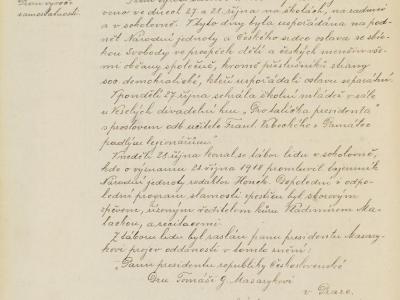 Dvou výročí
samostatnosti.
veno ve dnech 27. a 28. října na školách, na radnici
a v sokolovně. V tyto dny byla uspořádána na pod-
nět Národní jednoty a Českého srdce oslava se sbír-
kou Svobody ve prospěch dětí a českých menšin vše-
mi občany společně, kromě příslušníků strany
soc. demokratické, kteří uspořádali oslavu separátní.
V pondělí 27. října sehrála školní mládež v sále
u Veselých divadelní hru „Pro tatíčka presidenta"
s proslovem odb. učitele Frant. Vrbeckého „Památce
padlých legionářů".
V neděli 28. října konal se tábor lidu v sokolovně,
kde o významu 28. října 1918 promluvil tajemník
Národní jednoty redaktor Honek. Dopolední i odpo-
lední program slavnosti zpestřen byl sborovým
zpěvem, řízeným ředitelem kůru Vladimírem Ma-
lackou, a recitacemi.
Z táboru lidu byl zaslán panu presidentu Masary-
kovi projev oddanosti v tomto znění:
„Panu presidentu republiky Československé
Dru Tomáši G. Masarykovi
v Praze.